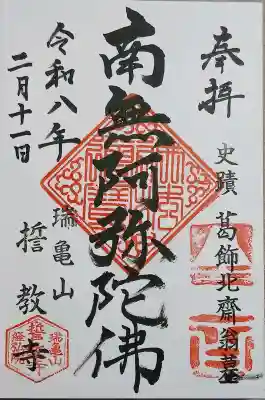 奉拝
史蹟 葛飾北齋翁墓
南無阿弥陀佛
令和八年
二月十一日
瑞亀山
誓教寺